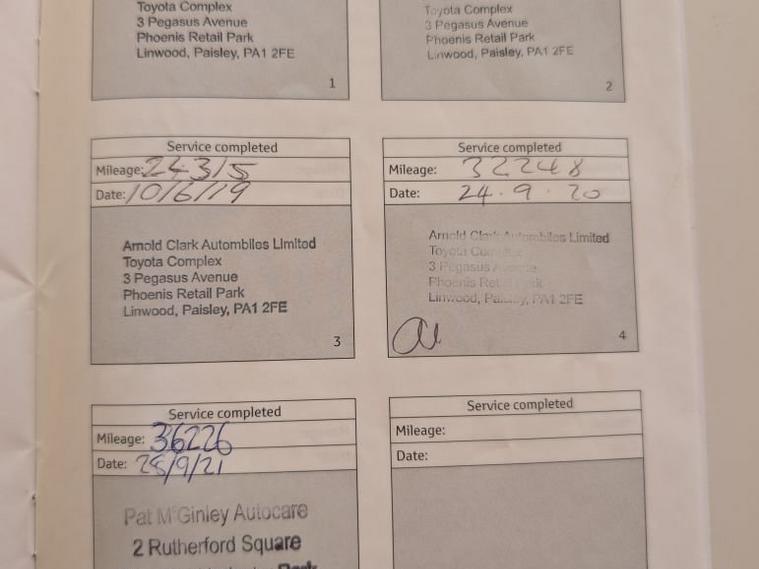 Toyota Complex
3 Pegasus Avenue
Phoenis Retail Park
Linwood, Paisley, PA1 2FE
1
Toyota Complex
3 Pegasus Avenue
Phoenis Retail Park
Linwood, Paisley, PA1 2FE
2
Service completed
Mileage: 24315
Date: 10/6/19
Arnold Clark Autombiles Limited
Toyota Complex
3 Pegasus Avenue
Phoenis Retail Park
Linwood, Paisley, PA1 2FE
3
Service completed
Mileage: 32248
Date: 24.9.20
Arnold Clark Autombiles Limited
Toyota Complex
3 Pegasus Avenue
Phoenis Retail Park
Linwood, Paisley, PA1 2FE
4
Service completed
Mileage: 36226
Date: 28/9/21
Pat McGinley Autocare
2 Rutherford Square
Park
Service completed
Mileage:
Date: